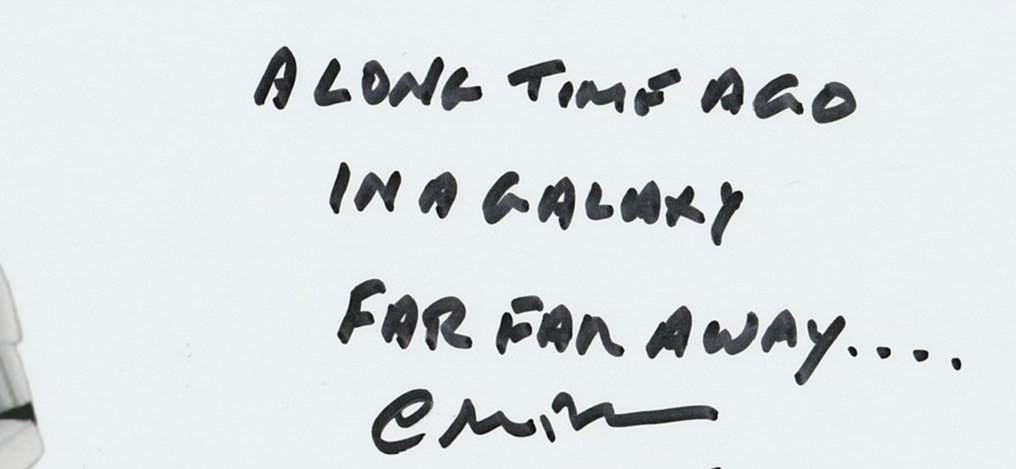 A LONG TIME AGO
IN A GALAXY
FAR FAR AWAY.....